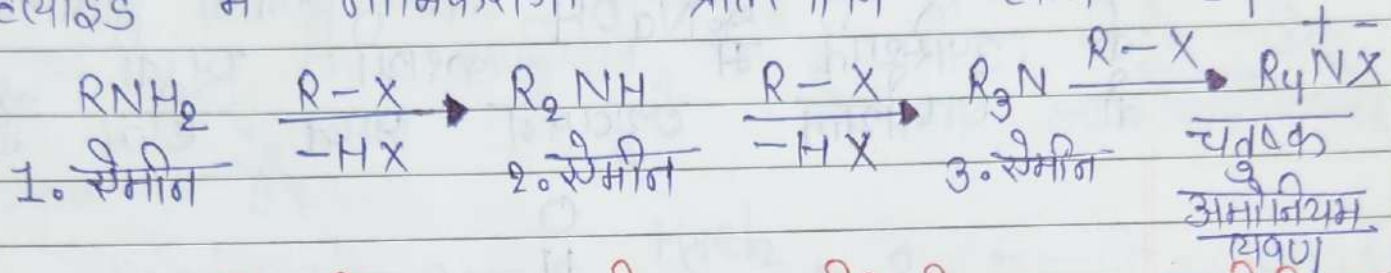 RNH₂ R-X R₂NH R-X R₃N R-X R₄N⁺X⁻
1. ऐमीन -HX 2. ऐमीन -HX 3. ऐमीन चतुष्क
अमोनियम
लवण